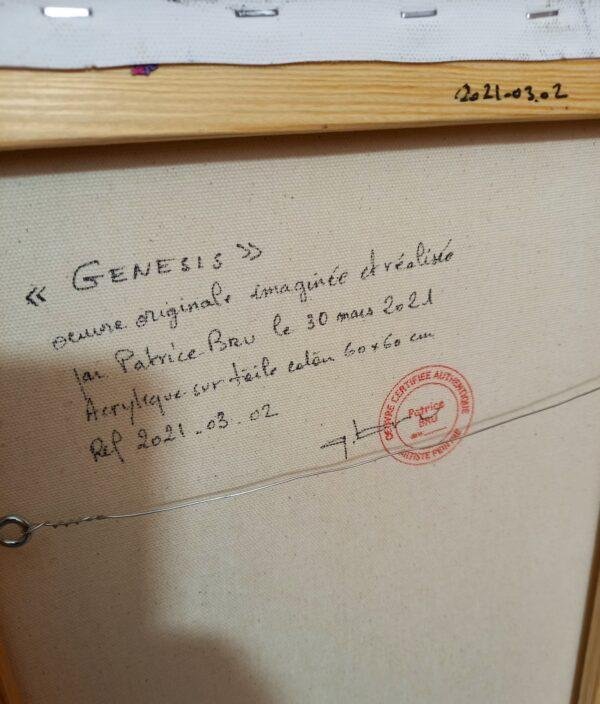 2021-03.02
« GENESIS »
oeuvre originale imaginée et réalisée
par Patrice BRU le 30 mars 2021
Acrylique sur toile coton 60x60 cm
Ref 2021-03-02
OEUVRE CERTIFIEE AUTHENTIQUE
Patrice
BRU
ARTISTE PEINTRE